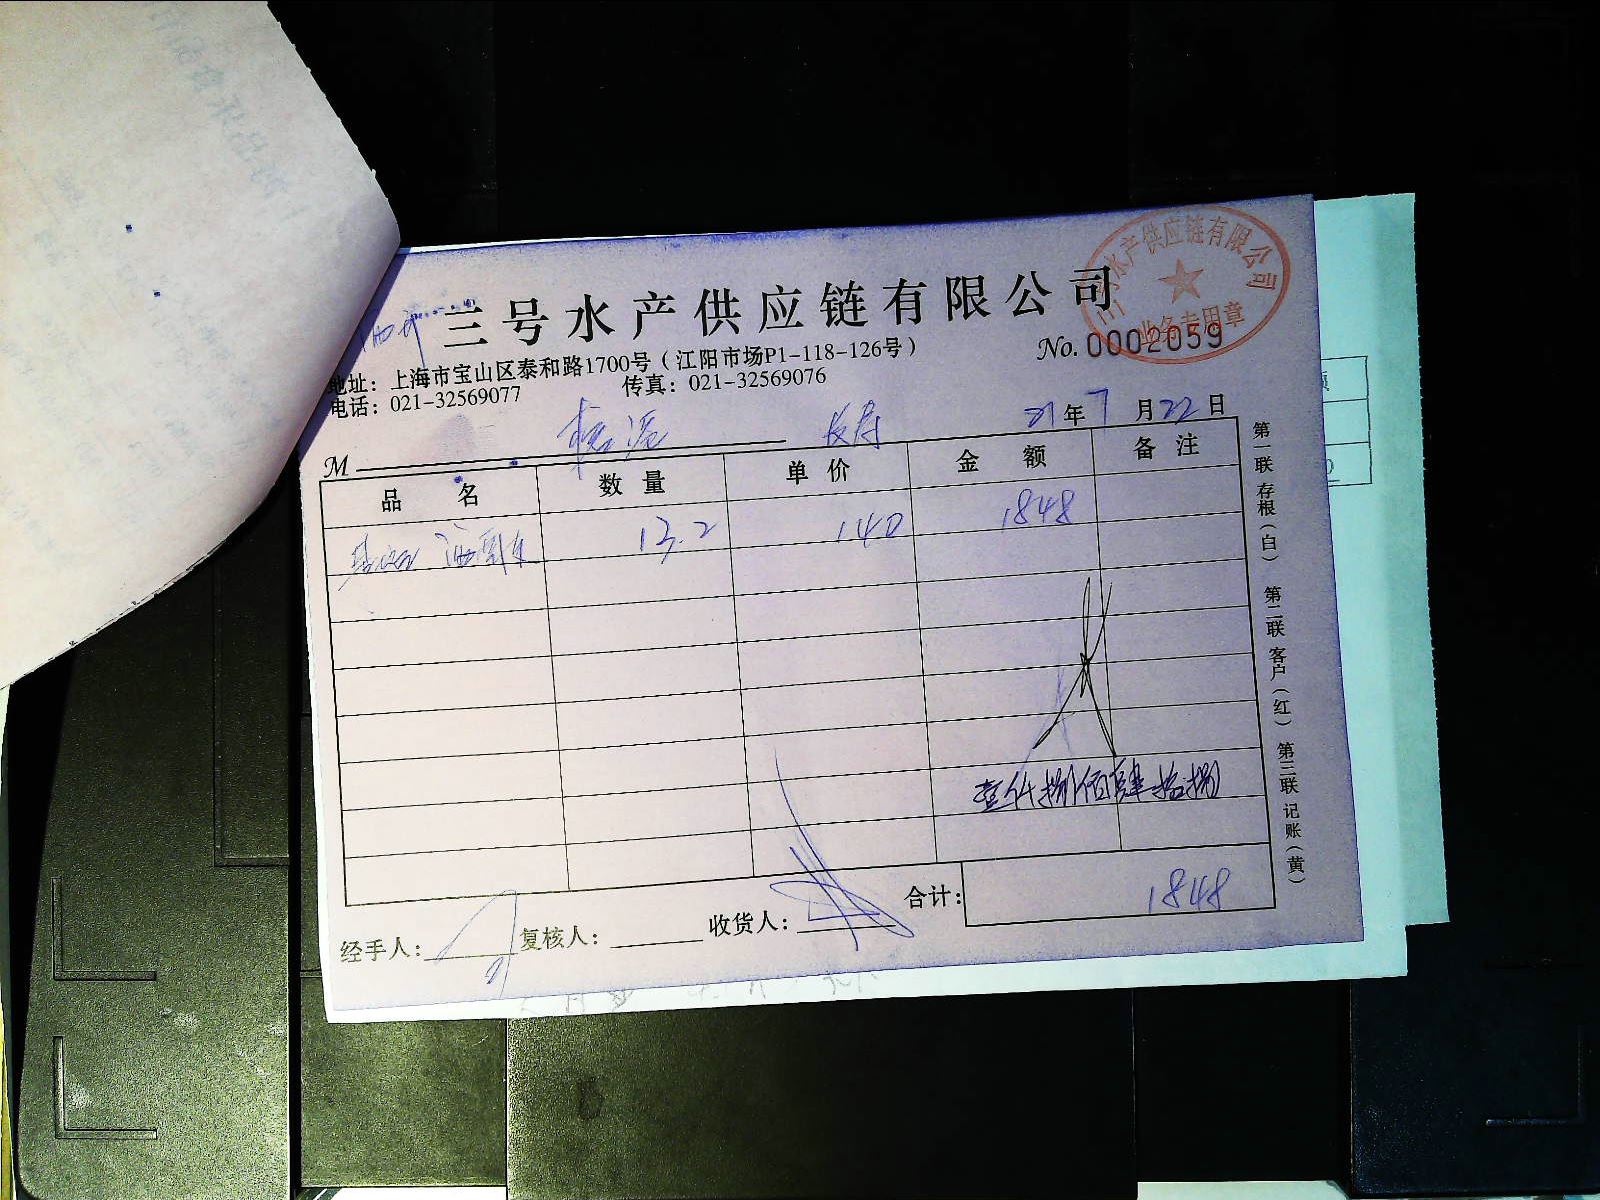 三号水产供应链有限公司
三号水产供应链有限公司
业务专用章
No. 0002059
地址：上海市宝山区泰和路1700号（江阳市场P1-118-126号）
电话：021-32569077 传真：021-32569076
M 21年7月22日
品名 数量 单价 金额 备注
13.2 140 1848
壹仟捌佰肆拾捌
合计： 1848
经手人： 复核人： 收货人：
第一联 存根（白） 第二联 客户（红） 第三联 记账（黄）